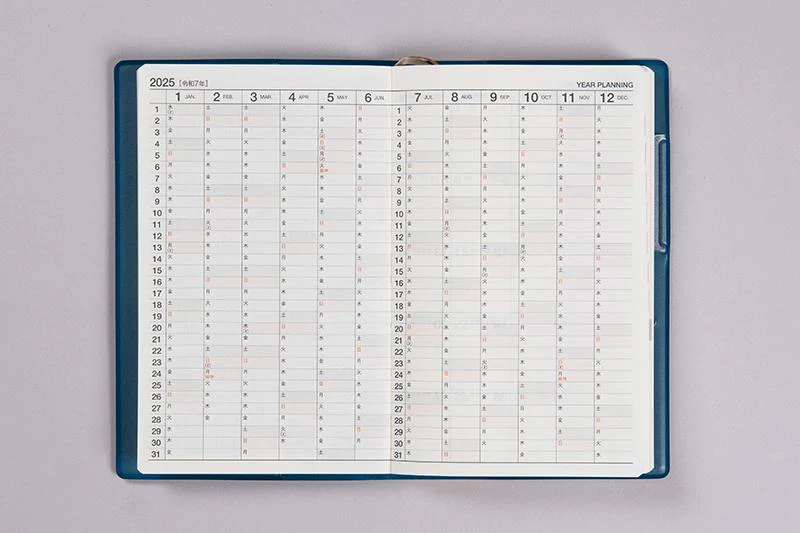 2025 [令和7年]
1 JAN. 2 FEB. 3 MAR. 4 APR. 5 MAY 6 JUN.
1 水 土 土 火 木 日
2 木 日 日 水 金 月
3 金 月 月 木 土 火
4 土 火 火 金 日 水
5 日 水 水 土 月 木
6 月 木 木 日 火 金
7 火 金 金 月 水 土
8 水 土 土 火 木 日
9 木 日 日 水 金 月
10 金 月 月 木 土 火
11 土 火 火 金 日 水
12 日 水 水 土 月 木
13 月 木 木 日 火 金
14 火 金 金 月 水 土
15 水 土 土 火 木 日
16 木 日 日 水 金 月
17 金 月 月 木 土 火
18 土 火 火 金 日 水
19 日 水 水 土 月 木
20 月 木 木 日 火 金
21 火 金 金 月 水 土
22 水 土 土 火 木 日
23 木 日 日 水 金 月
24 金 月 月 木 土 火
25 土 火 火 金 日 水
26 日 水 水 土 月 木
27 月 木 木 日 火 金
28 火 金 金 月 水 土
29 水 土 火 木 日
30 木 日 水 金 月
31 金 月 土
YEAR PLANNING
7 JUL. 8 AUG. 9 SEP. 10 OCT. 11 NOV. 12 DEC.
1 火 金 月 水 土 月
2 水 土 火 木 日 火
3 木 日 水 金 月 水
4 金 月 木 土 火 木
5 土 火 金 日 水 金
6 日 水 土 月 木 土
7 月 木 日 火 金 日
8 火 金 月 水 土 月
9 水 土 火 木 日 火
10 木 日 水 金 月 水
11 金 月 木 土 火 木
12 土 火 金 日 水 金
13 日 水 土 月 木 土
14 月 木 日 火 金 日
15 火 金 月 水 土 月
16 水 土 火 木 日 火
17 木 日 水 金 月 水
18 金 月 木 土 火 木
19 土 火 金 日 水 金
20 日 水 土 月 木 土
21 月 木 日 火 金 日
22 火 金 月 水 土 月
23 水 土 火 木 日 火
24 木 日 水 金 月 水
25 金 月 木 土 火 木
26 土 火 金 日 水 金
27 日 水 土 月 木 土
28 月 木 日 火 金 日
29 火 金 月 水 土 月
30 水 土 火 木 日 火
31 木 日 金 水